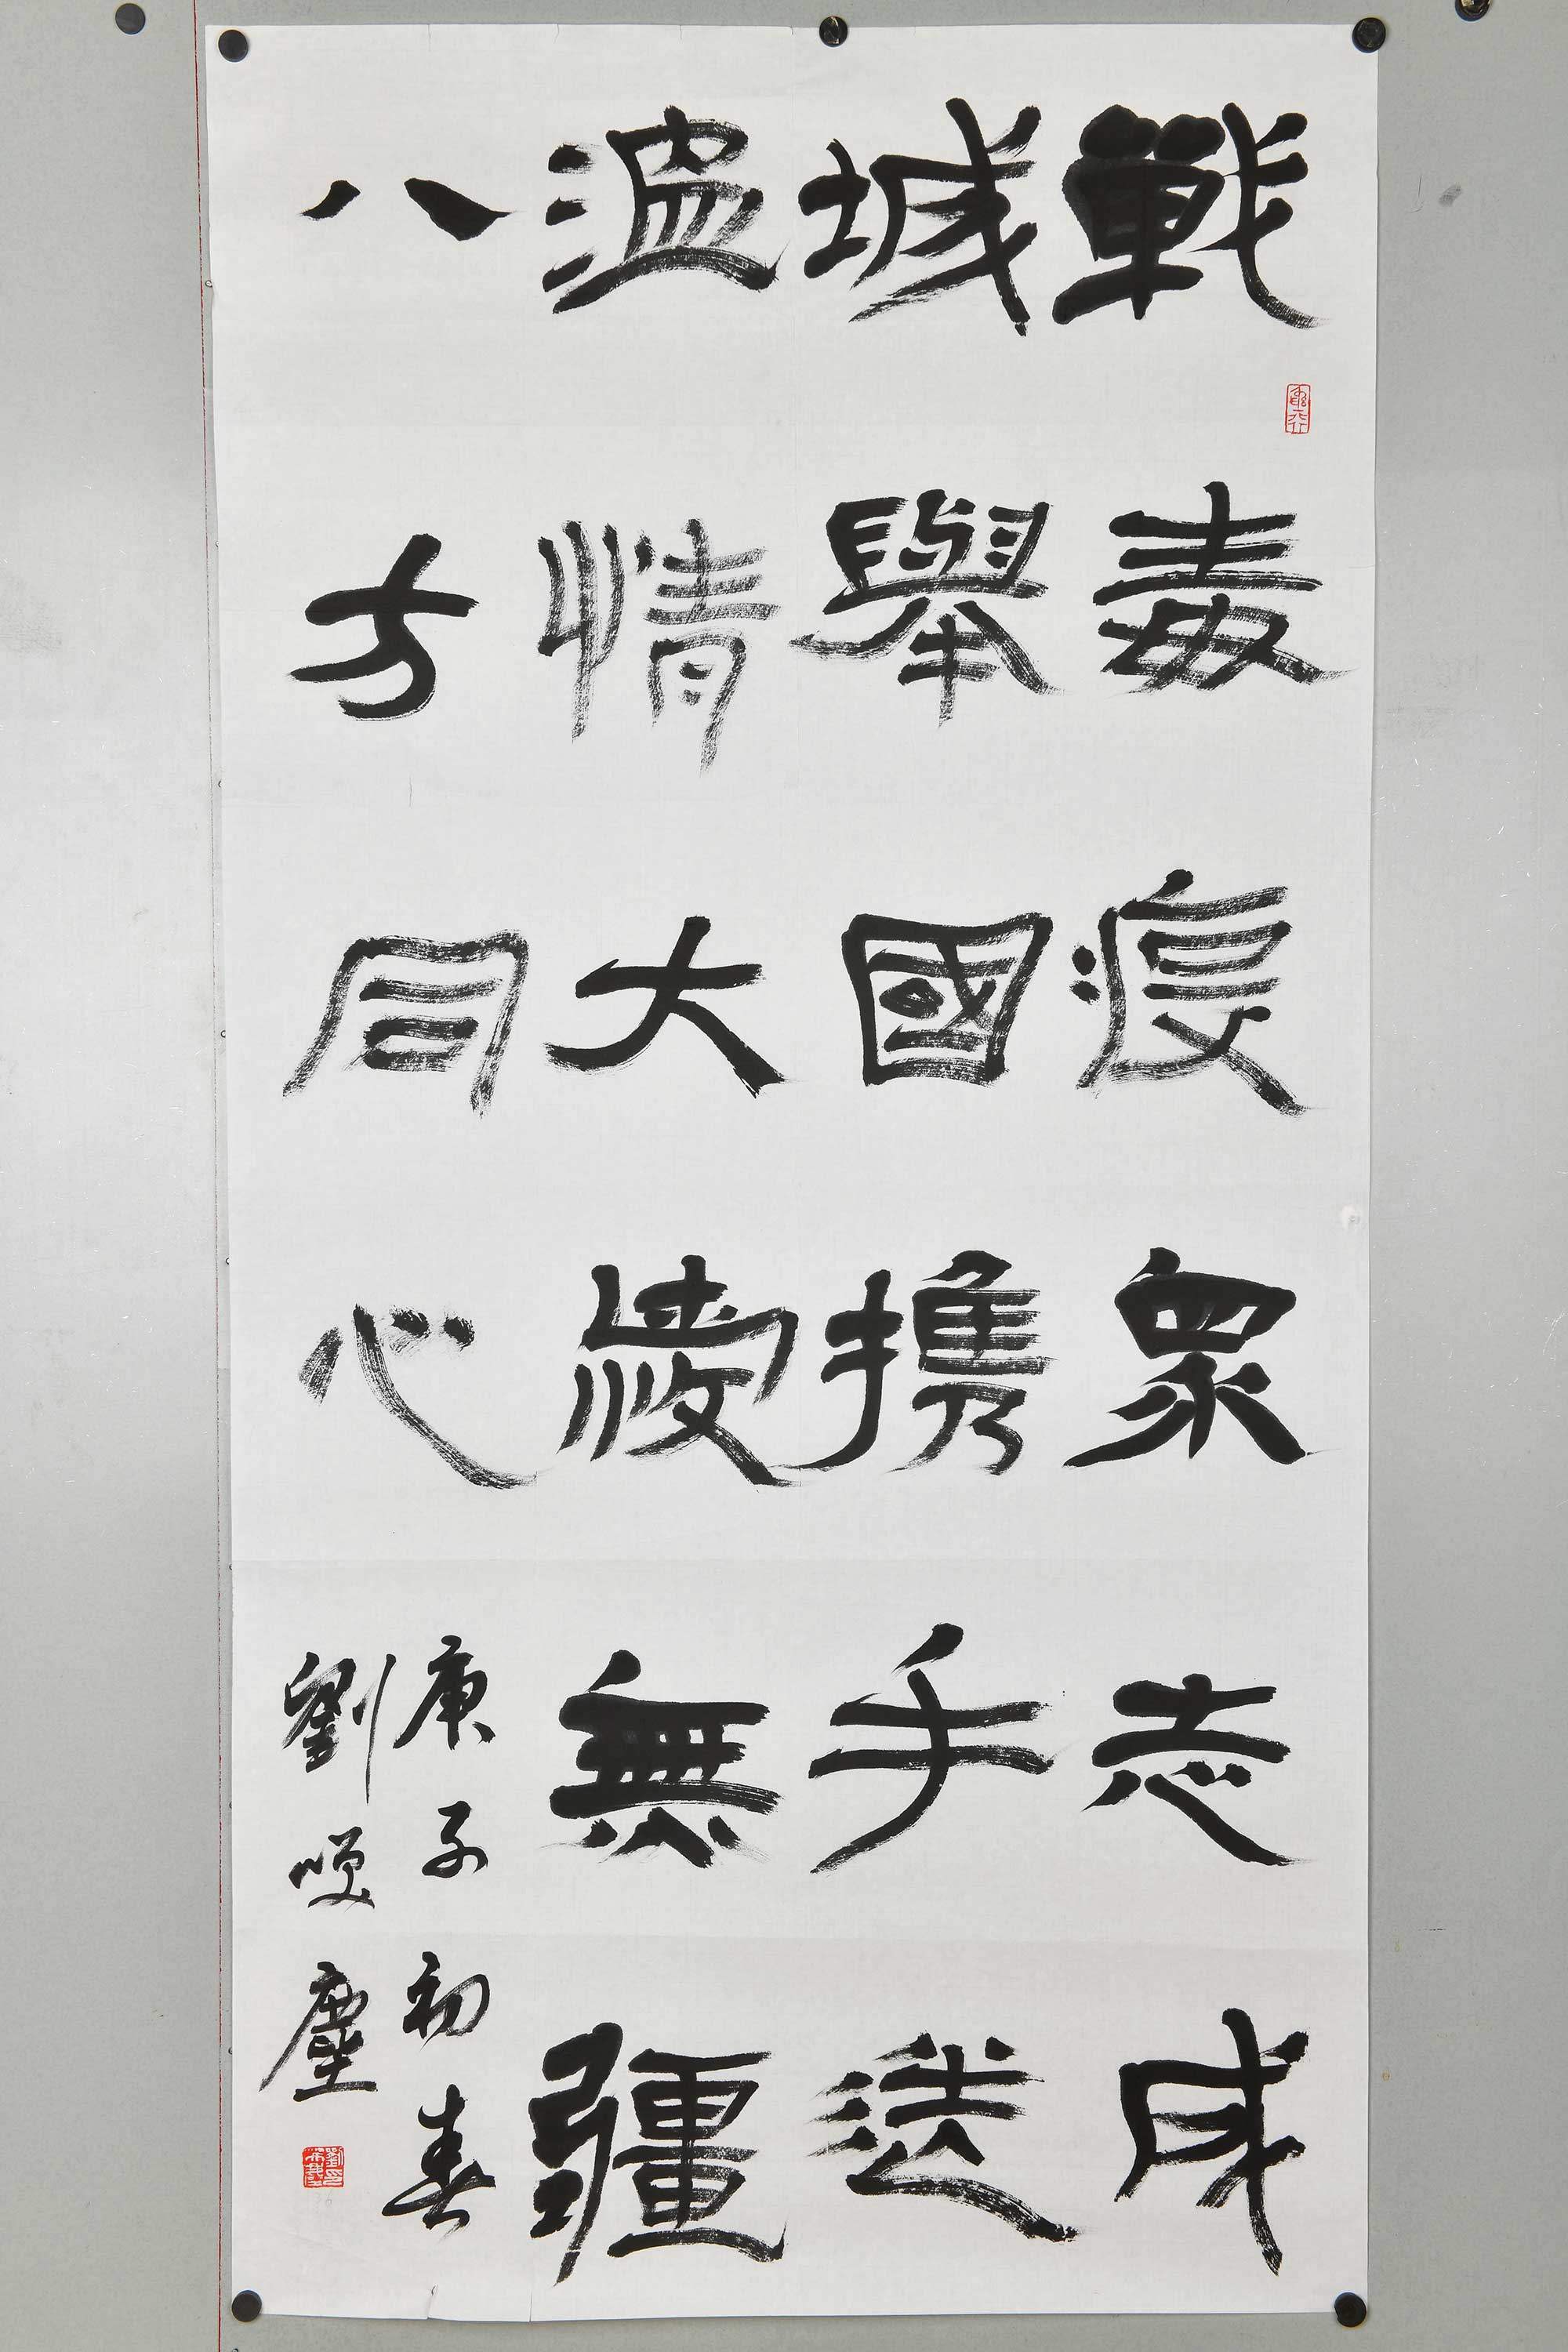 戰毒疫眾志成
城舉國携手送
溫情大愛無疆
八方同心
庚子初春
劉嘆塵